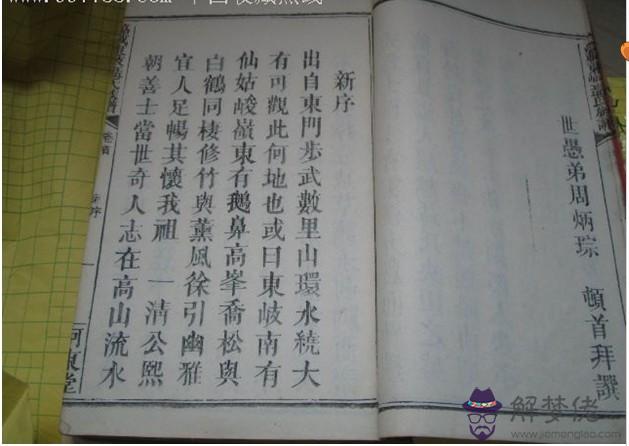 世愚弟周炳琮 頓首拜譔
新序
出自東門步武數里山環水繞大
有可觀此何地也或曰東岐南有
仙姑峻嶺東有鵝鼻高峯喬松與
白鶴同棲修竹與薰風徐引幽雅
宜人足暢其懷我祖 一清公熙
朝善士當世奇人志在高山流水
卷首
序
河東堂
解梦佬
www.jiemenglao.com